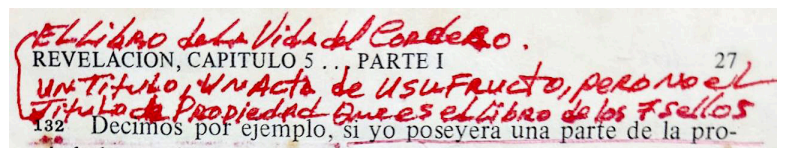 El Libro de la Vida del Cordero.
REVELACION, CAPITULO 5 . . . PARTE I 27
UN Titulo, UN Acta de USUFRUCTO, pero No el
Titulo de Propiedad Que es el Libro de los 7 sellos
132 Decimos por ejemplo, si yo poseyera una parte de la pro-